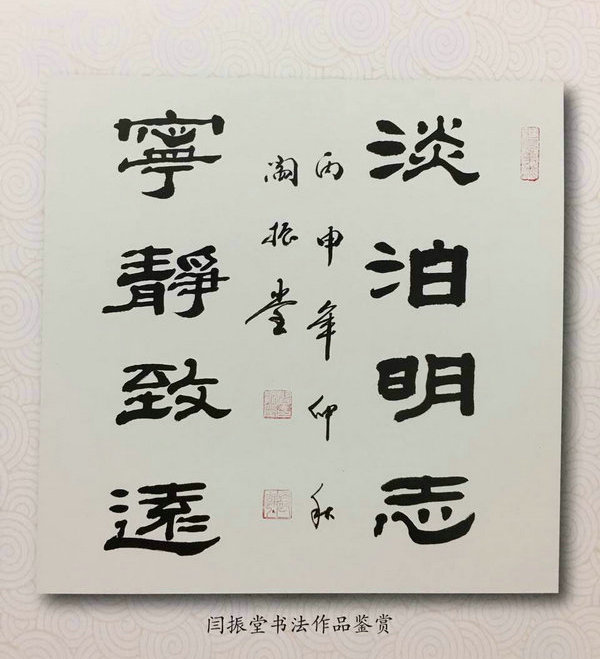 淡泊明志
丙申年仲秋
阎振堂
寧靜致遠
闫振堂书法作品鉴赏